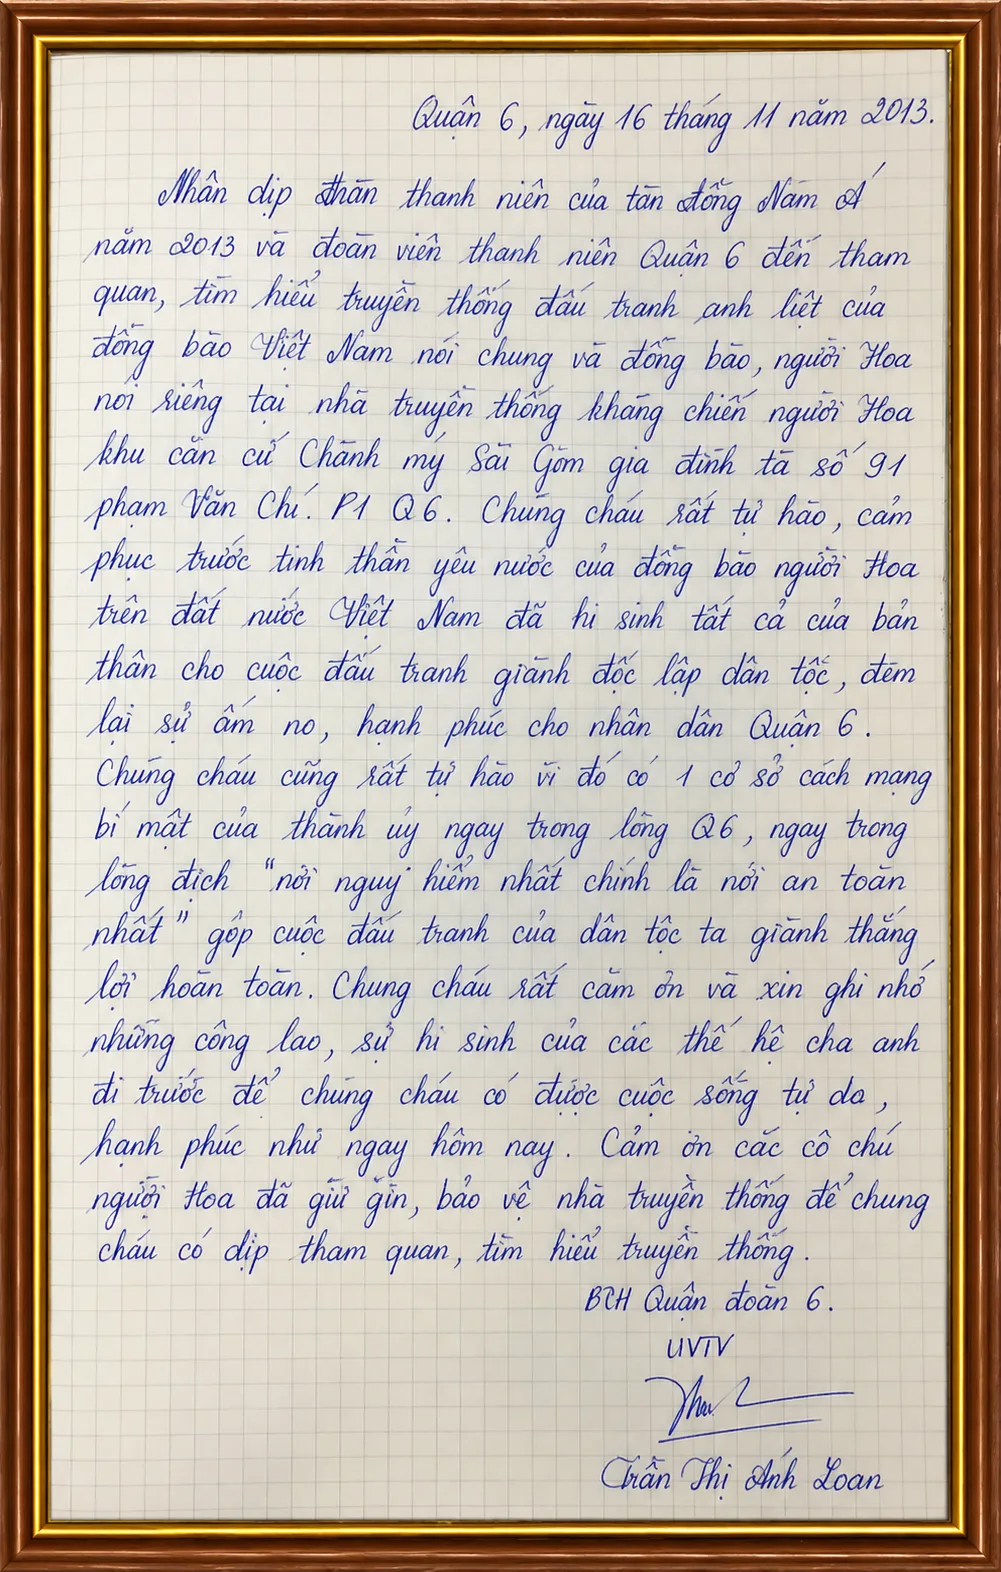 Quận 6, ngày 16 tháng 11 năm 2013.
Nhân dịp thanh niên của tàn đống Nam Á
năm 2013 và đoàn viên thanh niên Quận 6 đến tham
quan, tìm hiểu truyền thống đấu tranh anh liệt của
đồng bào Việt Nam nói chung và đồng bào, người Hoa
nói riêng tại nhà truyền thống kháng chiến người Hoa
khu căn cứ Chánh mý Sài Gòm gia đình tà số 91
phạm Văn Chí. P1 Q6. Chúng cháu rất tự hào, cảm
phục trước tinh thần yêu nước của đồng bào người Hoa
trên đất nước Việt Nam đã hi sinh tất cả của bản
thân cho cuộc đấu tranh giành độc lập dân tộc, đem
lại sự ấm no, hạnh phúc cho nhân dân Quận 6.
Chúng cháu cũng rất tự hào vì đó có 1 cơ sở cách mạng
bí mật của thành ủy ngay trong lòng Q6, ngay trong
lòng địch "nơi nguy hiểm nhất chính là nơi an toàn
nhất" góp cuộc đấu tranh của dân tộc ta giành thắng
lợi hoàn toàn. Chung cháu rất cảm ơn và xin ghi nhớ
những công lao, sự hi sinh của các thế hệ cha anh
đi trước để chúng cháu có được cuộc sống tự do,
hạnh phúc như ngay hôm nay. Cảm ơn các cô chú
người Hoa đã giữ gìn, bảo vệ nhà truyền thống để chung
cháu có dịp tham quan, tìm hiểu truyền thống.
BCH Quận đoàn 6.
UVTV
Trần Thị Ánh Loan